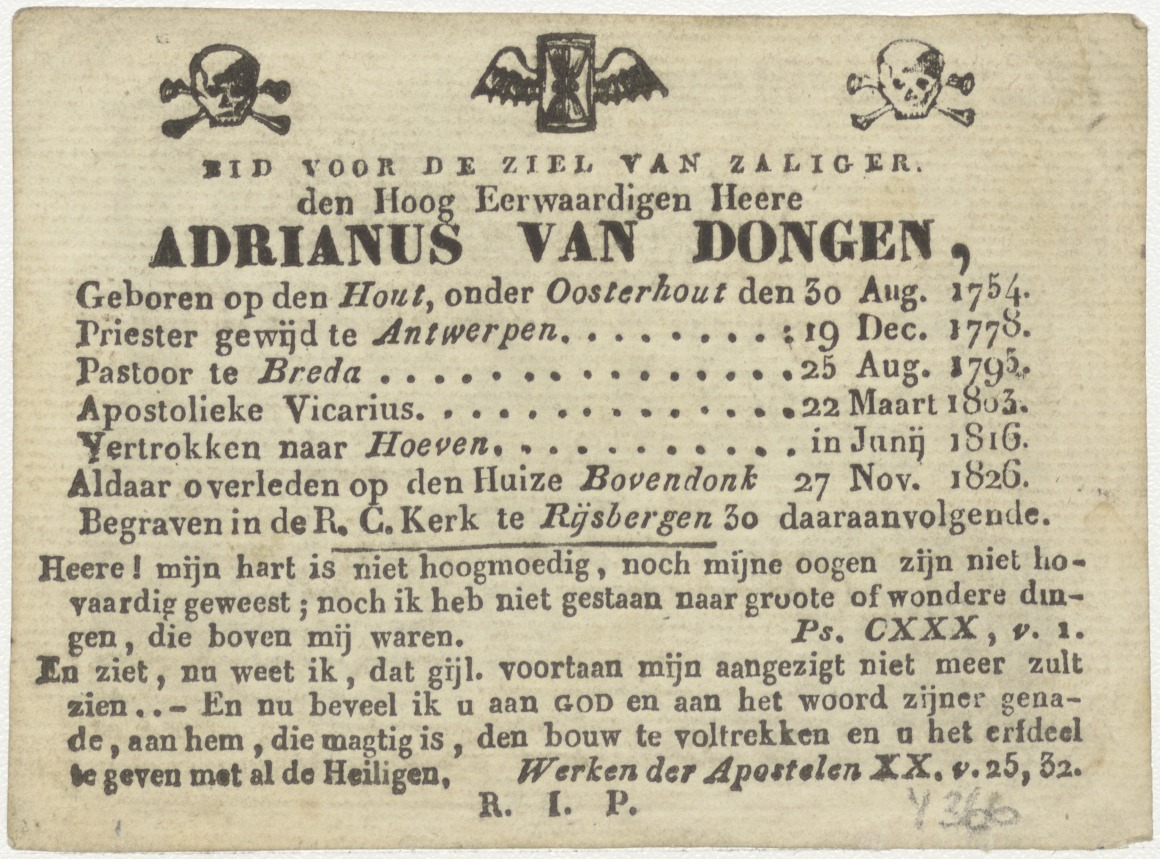 BID VOOR DE ZIEL VAN ZALIGER.
den Hoog Eerwaardigen Heere
ADRIANUS VAN DONGEN,
Geboren op den Hout, onder Oosterhout den 30 Aug. 1754.
Priester gewijd te Antwerpen. . . . . . . . : 19 Dec. 1778.
Pastoor te Breda . . . . . . . . . . . . . . . . 25 Aug. 1795.
Apostolieke Vicarius. . . . . . . . . . . . . . . 22 Maart 1803.
Vertrokken naar Hoeven. . . . . . . . . . . . in Junij 1816.
Aldaar overleden op den Huize Bovendonk 27 Nov. 1826.
Begraven in de R. C. Kerk te Rijsbergen 30 daaraanvolgende.
Heere! mijn hart is niet hoogmoedig, noch mijne oogen zijn niet ho-
vaardig geweest; noch ik heb niet gestaan naar groote of wondere din-
gen, die boven mij waren. Ps. CXXX, v. 1.
En ziet, nu weet ik, dat gijl. voortaan mijn aangezigt niet meer zult
zien..- En nu beveel ik u aan GOD en aan het woord zijner gena-
de, aan hem, die magtig is, den bouw te voltrekken en u het erfdeel
te geven met al de Heiligen. Werken der Apostelen XX. v. 25, 32.
R. I. P.
Y 366